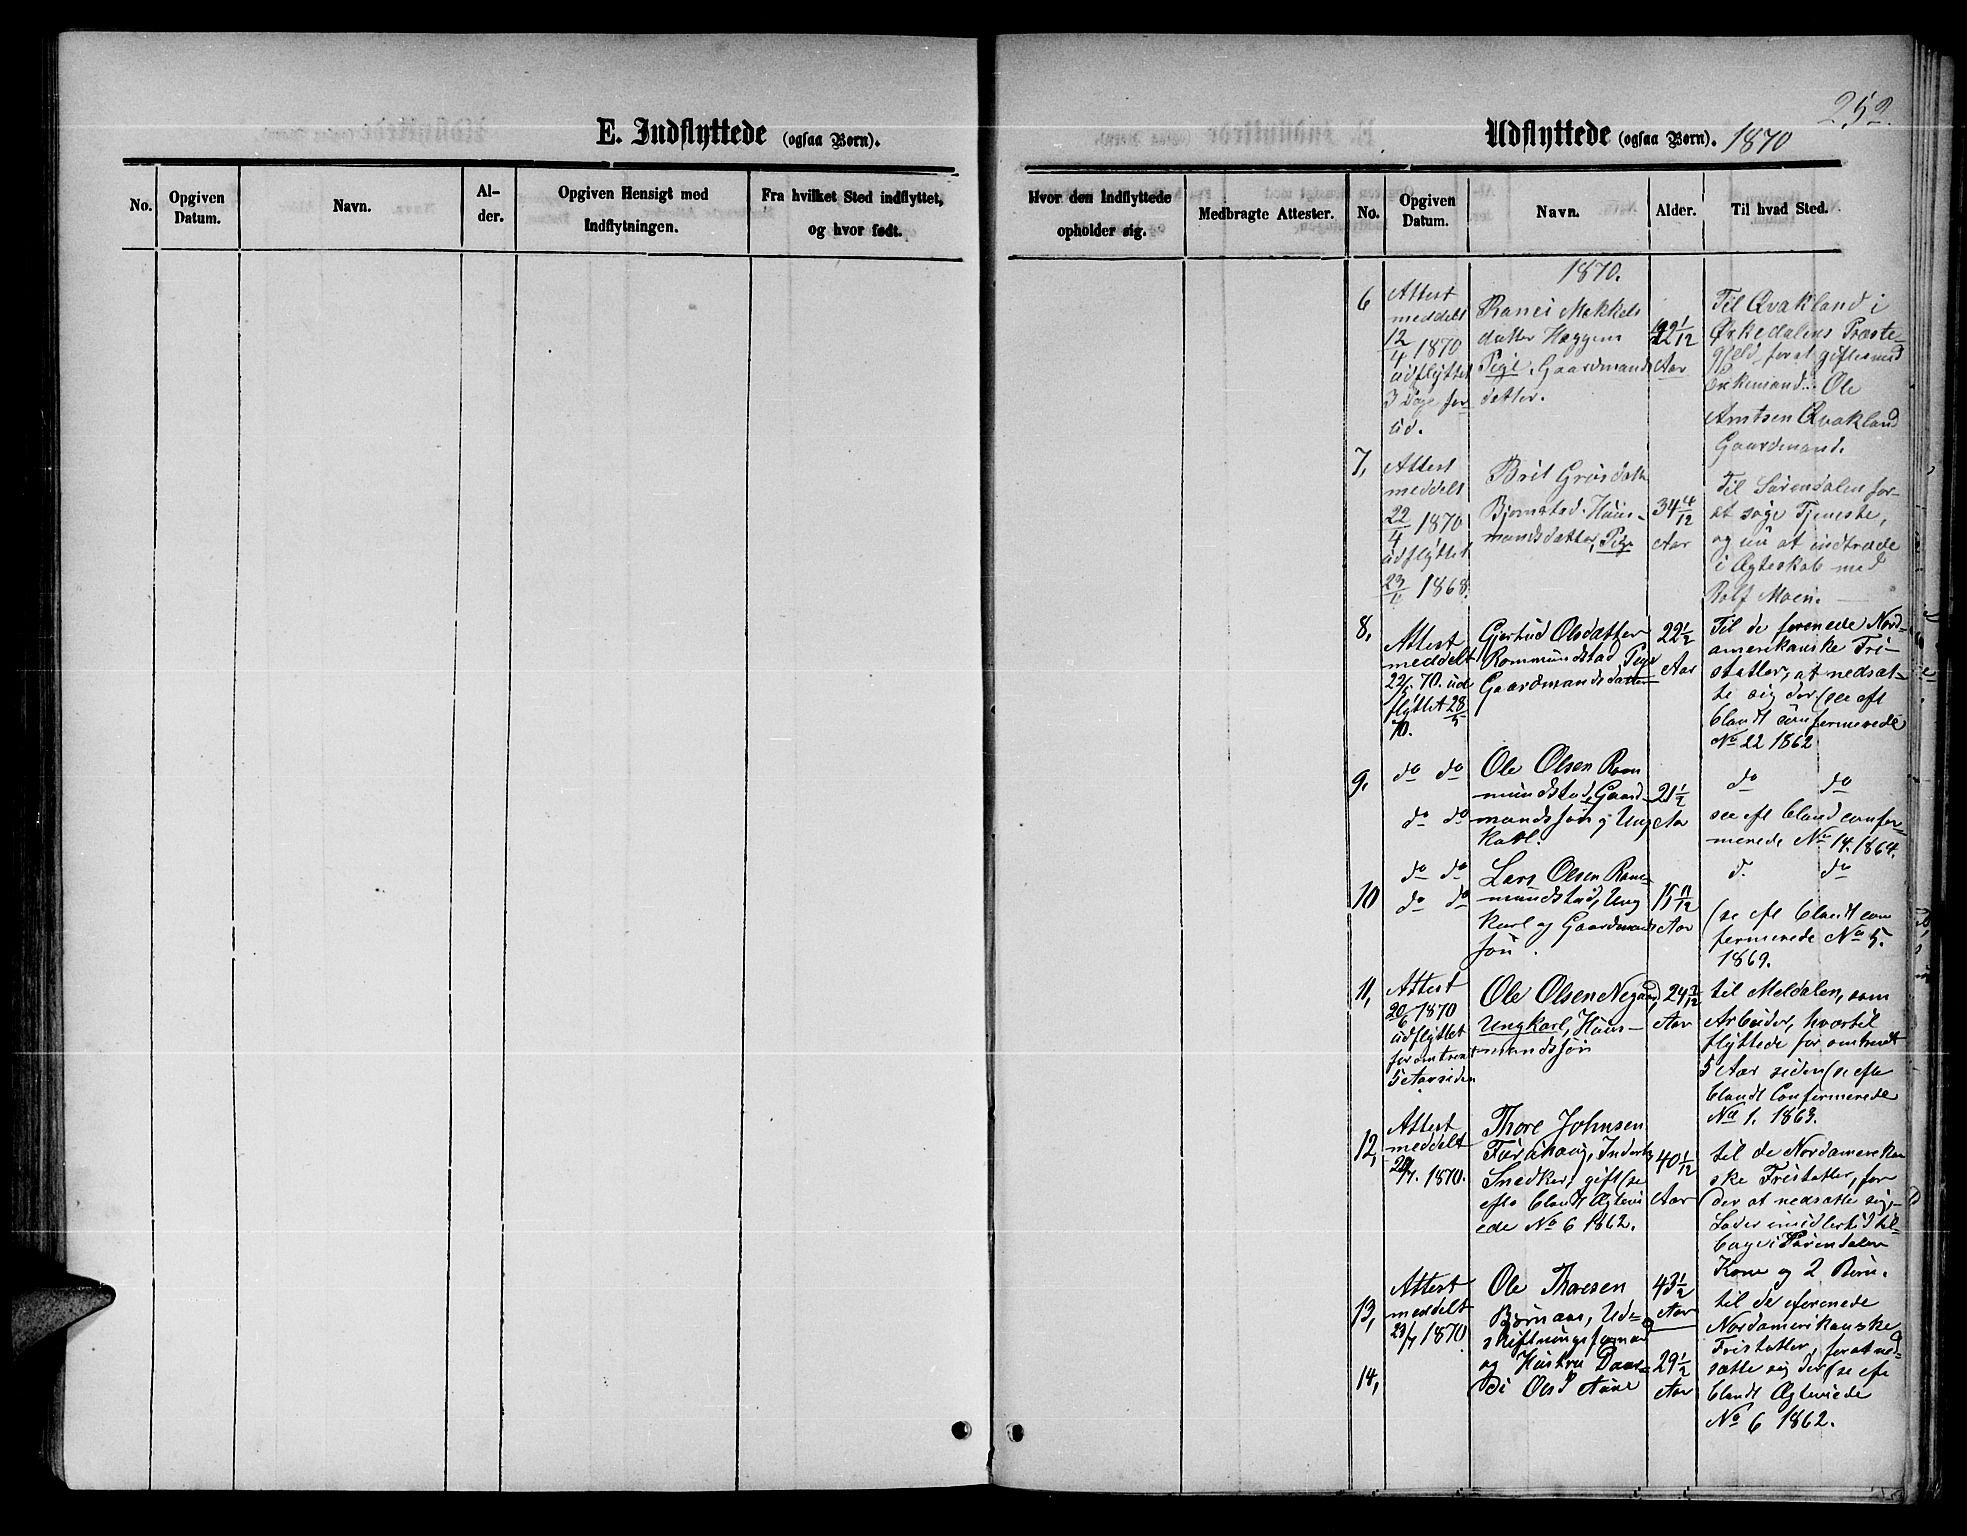 252.
E. Indflyttede (ogsaa Børn).
No.
Opgiven Datum.
Navn.
Al-
der.
Opgiven Hensigt med
Indflytningen.
Fra hvilket Sted indflyttet,
og hvor født.
Udflyttede (ogsaa Børn). 1870
Hvor den Indflyttede
opholder sig.
Medbragte Attester.
No.
Opgiven Datum.
Navn.
Alder.
Til hvad Sted.
1870.
6
Attest
meddelt
12/4 1870
udflyttet
3 Dage for-
ud.
datter Hæggem
Pige, Gaardmands
datter.
22 1/12
Aar
Til Qvakland i
Ørkedalens Præste-
gjeld, for at giftes med
Enkemand Ole
Arntsen Qvakland
Gaardmand.
7,
Attest
meddelt
22/4 1870
udflyttet
1868.
Brit
Bjørnstad, Huus-
mandsdatter, Pige
34 4/12
Aar
Til Surendalen for
at søge Tjeneste,
og nu at indtræde
i Ægteskab med
Rolf Moen.
8,
Attest
meddelt
70. ud
flyttet 28/5
70.
Gjertrud Olsdatter
Rommundstad, Pige
Gaardmandsdatter
22 1/2
Aar
Til de forenede Nord-
amerikanske Fri-
stater, at nedsæt-
te sig der (see efl
blandt confirmerede
No 22 1862
9,
do do
do do
Ole Olsen Rom
mundstad, Gaard-
mandssøn og Ung
karl.
21 1/2
Aar
do do
see efl bland confir-
merede No 14. 1864.
10
do do
do do
Lars Olsen Rom-
mundstad, Ung
karl og Gaardmands
søn.
15 11/12
Aar
d. do
(se efl blandt con
firmerede No 5.
1869.
11,
Attest
20/6 1870
udflyttet
for omtrent
5 Aar siden
Ole Olsen Negaard,
Ungkarl, Huus-
mandssøn
24
Aar
til Meldalen, som
Arbeider, hvortil
flyttede for omtrent
5 Aar siden (se efte
blandt Confirmerede
No 1. 1863.
12,
Attest
meddelt
1870.
Thore Johnsen
Snedker, gift (se
efte blandt Ægtevi
ede No 6 1862.
40 1/12
Aar
til de Nordamerikan
ske Fristater, for
der at nedsætte sig,
Lader imidlertid til-
bage i Surendalen
Kone og 2 Børn.
13,
Attest
meddelt
23/7 1870
Ole Thoresen
Børuaas, Ud-
skiftningsformand
43 1/2
Aar
til de forenede
Nordamerikanske
Fristater, for at ned-
sætte sig der (se efte
blandt Ægteviede
No 6 1862.
14,
og Hustru
di Olsd Aune
29 1/2
Aar